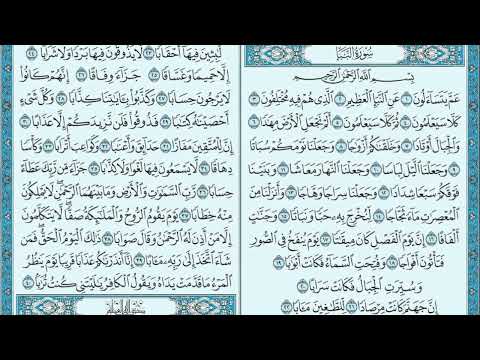 سُورَةُ النَّبَإِ
بِسْمِ اللَّهِ الرَّحْمَٰنِ الرَّحِيمِ
عَمَّ يَتَسَآءَلُونَ ١ عَنِ ٱلنَّبَإِ ٱلْعَظِيمِ ٢ ٱلَّذِى هُمْ فِيهِ مُخْتَلِفُونَ ٣
كَلَّا سَيَعْلَمُونَ ٤ ثُمَّ كَلَّا سَيَعْلَمُونَ ٥ أَلَمْ نَجْعَلِ ٱلْأَرْضَ مِهَٰدًا ٦
وَٱلْجِبَالَ أَوْتَادًا ٧ وَخَلَقْنَٰكُمْ أَزْوَٰجًا ٨ وَجَعَلْنَا نَوْمَكُمْ سُبَاتًا
٩ وَجَعَلْنَا ٱلَّيْلَ لِبَاسًا ١٠ وَجَعَلْنَا ٱلنَّهَارَ مَعَاشًا ١١ وَبَنَيْنَا
فَوْقَكُمْ سَبْعًا شِدَادًا ١٢ وَجَعَلْنَا سِرَاجًا وَهَّاجًا ١٣ وَأَنزَلْنَا مِنَ
ٱلْمُعْصِرَٰتِ مَآءً ثَجَّاجًا ١٤ لِّنُخْرِجَ بِهِۦ حَبًّا وَنَبَاتًا ١٥ وَجَنَّٰتٍ
أَلْفَافًا ١٦ إِنَّ يَوْمَ ٱلْفَصْلِ كَانَ مِيقَٰتًا ١٧ يَوْمَ يُنفَخُ فِى ٱلصُّورِ
فَتَأْتُونَ أَفْوَاجًا ١٨ وَفُتِحَتِ ٱلسَّمَآءُ فَكَانَتْ أَبْوَٰبًا ١٩
وَسُيِّرَتِ ٱلْجِبَالُ فَكَانَتْ سَرَابًا ٢٠
إِنَّ جَهَنَّمَ كَانَتْ مِرْصَادًا ٢١ لِّلطَّٰغِينَ مَـَٔابًا ٢٢
لَّٰبِثِينَ فِيهَآ أَحْقَابًا ٢٣ لَّا يَذُوقُونَ فِيهَا بَرْدًا وَلَا شَرَابًا ٢٤
إِلَّا حَمِيمًا وَغَسَّاقًا ٢٥ جَزَآءً وِفَاقًا ٢٦ إِنَّهُمْ كَانُوا۟
لَا يَرْجُونَ حِسَابًا ٢٧ وَكَذَّبُوا۟ بِـَٔايَٰتِنَا كِذَّابًا ٢٨ وَكُلَّ شَىْءٍ
أَحْصَيْنَٰهُ كِتَٰبًا ٢٩ فَذُوقُوا۟ فَلَن نَّزِيدَكُمْ إِلَّا عَذَابًا ٣٠
إِنَّ لِلْمُتَّقِينَ مَفَازًا ٣١ حَدَآئِقَ وَأَعْنَٰبًا ٣٢ وَكَوَاعِبَ أَتْرَابًا ٣٣ وَكَأْسًا
دِهَاقًا ٣٤ لَّا يَسْمَعُونَ فِيهَا لَغْوًا وَلَا كِذَّٰبًا ٣٥ جَزَآءً مِّن رَّبِّكَ عَطَآءً
حِسَابًا ٣٦ رَّبِّ ٱلسَّمَٰوَٰتِ وَٱلْأَرْضِ وَمَا بَيْنَهُمَا ٱلرَّحْمَٰنِ لَا يَمْلِكُونَ
مِنْهُ خِطَابًا ٣٧ يَوْمَ يَقُومُ ٱلرُّوحُ وَٱلْمَلَٰٓئِكَةُ صَفًّا لَّا يَتَكَلَّمُونَ
إِلَّا مَنْ أَذِنَ لَهُ ٱلرَّحْمَٰنُ وَقَالَ صَوَابًا ٣٨ ذَٰلِكَ ٱلْيَوْمُ ٱلْحَقُّ فَمَن
شَآءَ ٱتَّخَذَ إِلَىٰ رَبِّهِۦ مَـَٔابًا ٣٩ إِنَّآ أَنذَرْنَٰكُمْ عَذَابًا قَرِيبًا يَوْمَ يَنظُرُ
ٱلْمَرْءُ مَا قَدَّمَتْ يَدَاهُ وَيَقُولُ ٱلْكَافِرُ يَٰلَيْتَنِى كُنتُ تُرَٰبًۢا ٤٠